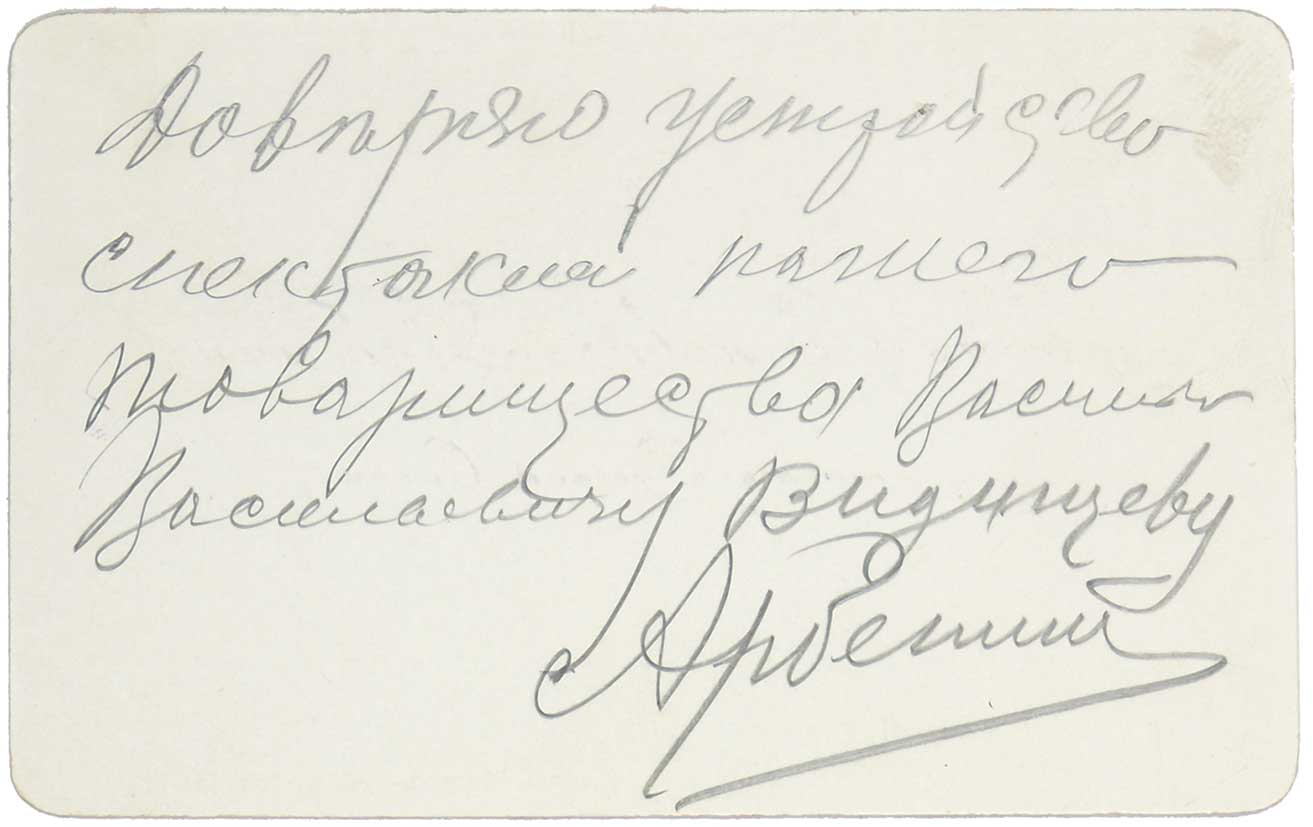 Доверяю устройство
спектакля нашего
товарищества Василию
Васильевичу Видинцеву
Арбенин